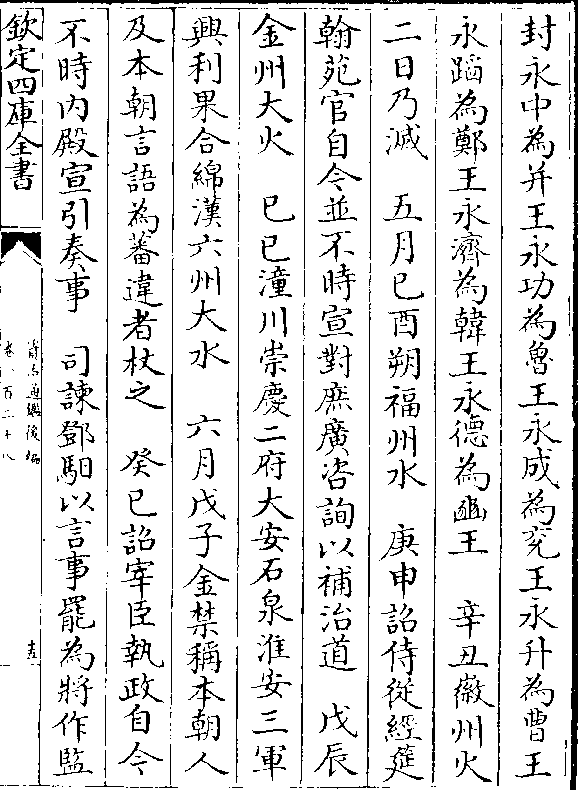 封永中為并王永功為魯王永成為兖王永升為曹王
永蹈為鄭王永濟為韓王永德為豳王　辛丑徽州火
二日乃滅　五月己酉朔福州水　庚申詔侍從經筵
翰苑官自今並不時宣對庶廣咨詢以補治道　戊辰
金州大火　己巳潼川崇慶二府大安石泉淮安三軍
興利果合綿漢六州大水　六月戊子金禁稱本朝人
及本朝言語為蕃違者杖之　癸巳詔宰臣執政自今
不時内殿宣引奏事　司諫鄧馹以言事罷為將作監
欽定四庫全書
資治通鑑後編
卷一百二十八